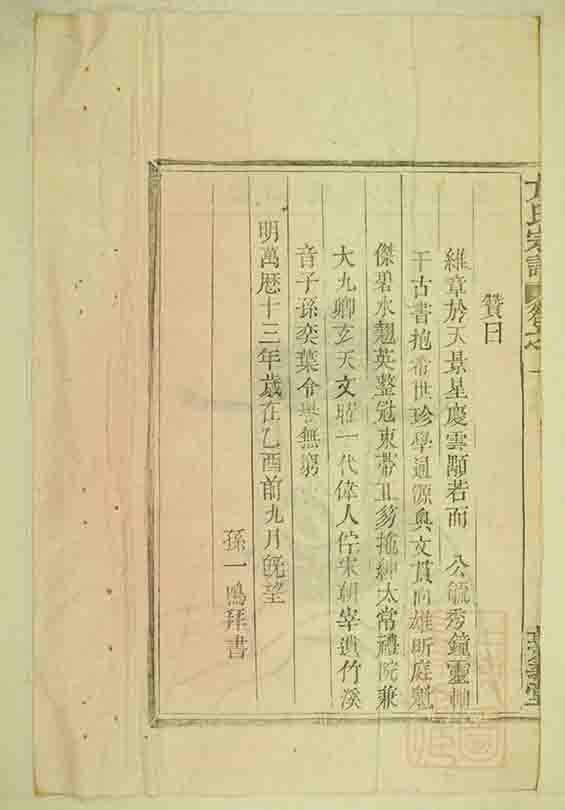 氏宗譜 卷之一
贊曰
維章於天景星慶雲顒若而 公毓秀鐘靈
千古書抱希世珍學通源奧文貫 雄昕庭魁
傑碧水翹英整冠束帶正笏拖紳太常禮院兼
大九卿玄天文 一代偉人佇宋朝宰遺竹溪
音子孫奕葉令譽無窮
明萬曆十三年歲在乙酉前九月既望
孫一鳴拜書